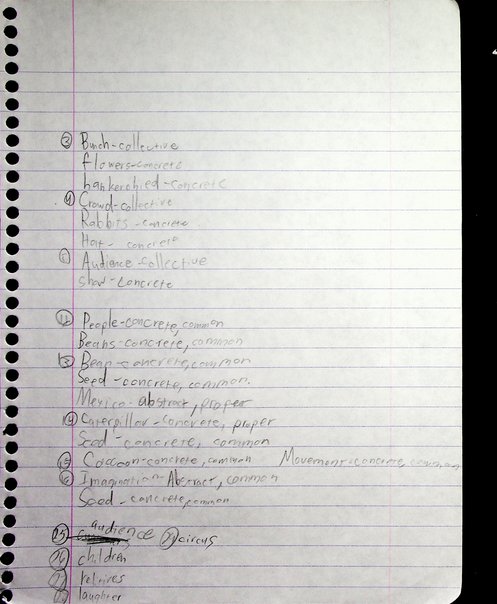 ③ Bunch-collective
flowers-concrete
hankerchied-concrete
④ Crowd-collective
Rabbits-concrete
Hat- concrete
Audience-collective
show-concrete
⑪ People-concrete, common
Beans-concrete, common
Bean-concrete, common
Seed-concrete, common.
Mexico-abstract, proper
⑭ Caterpillar-concrete, proper
Seed-concrete, common
⑮ Cocoon-concrete, common Movement-concrete, common
Imagination-Abstract, common
Seed-concrete, common
㉕ audience circus
㉖ children
㉗ reltives
laughter